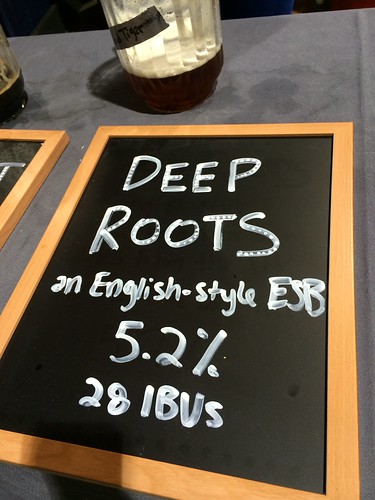 Tiger
DEEP
ROOTS
an English-style ESB
5.2%
28 IBUs